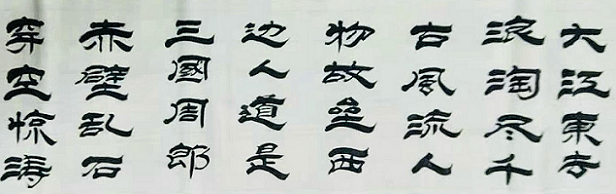 大江東去
浪淘尽千
古風流人
物故垒西
边人道是
三國周郎
赤壁乱石
穿空惊涛